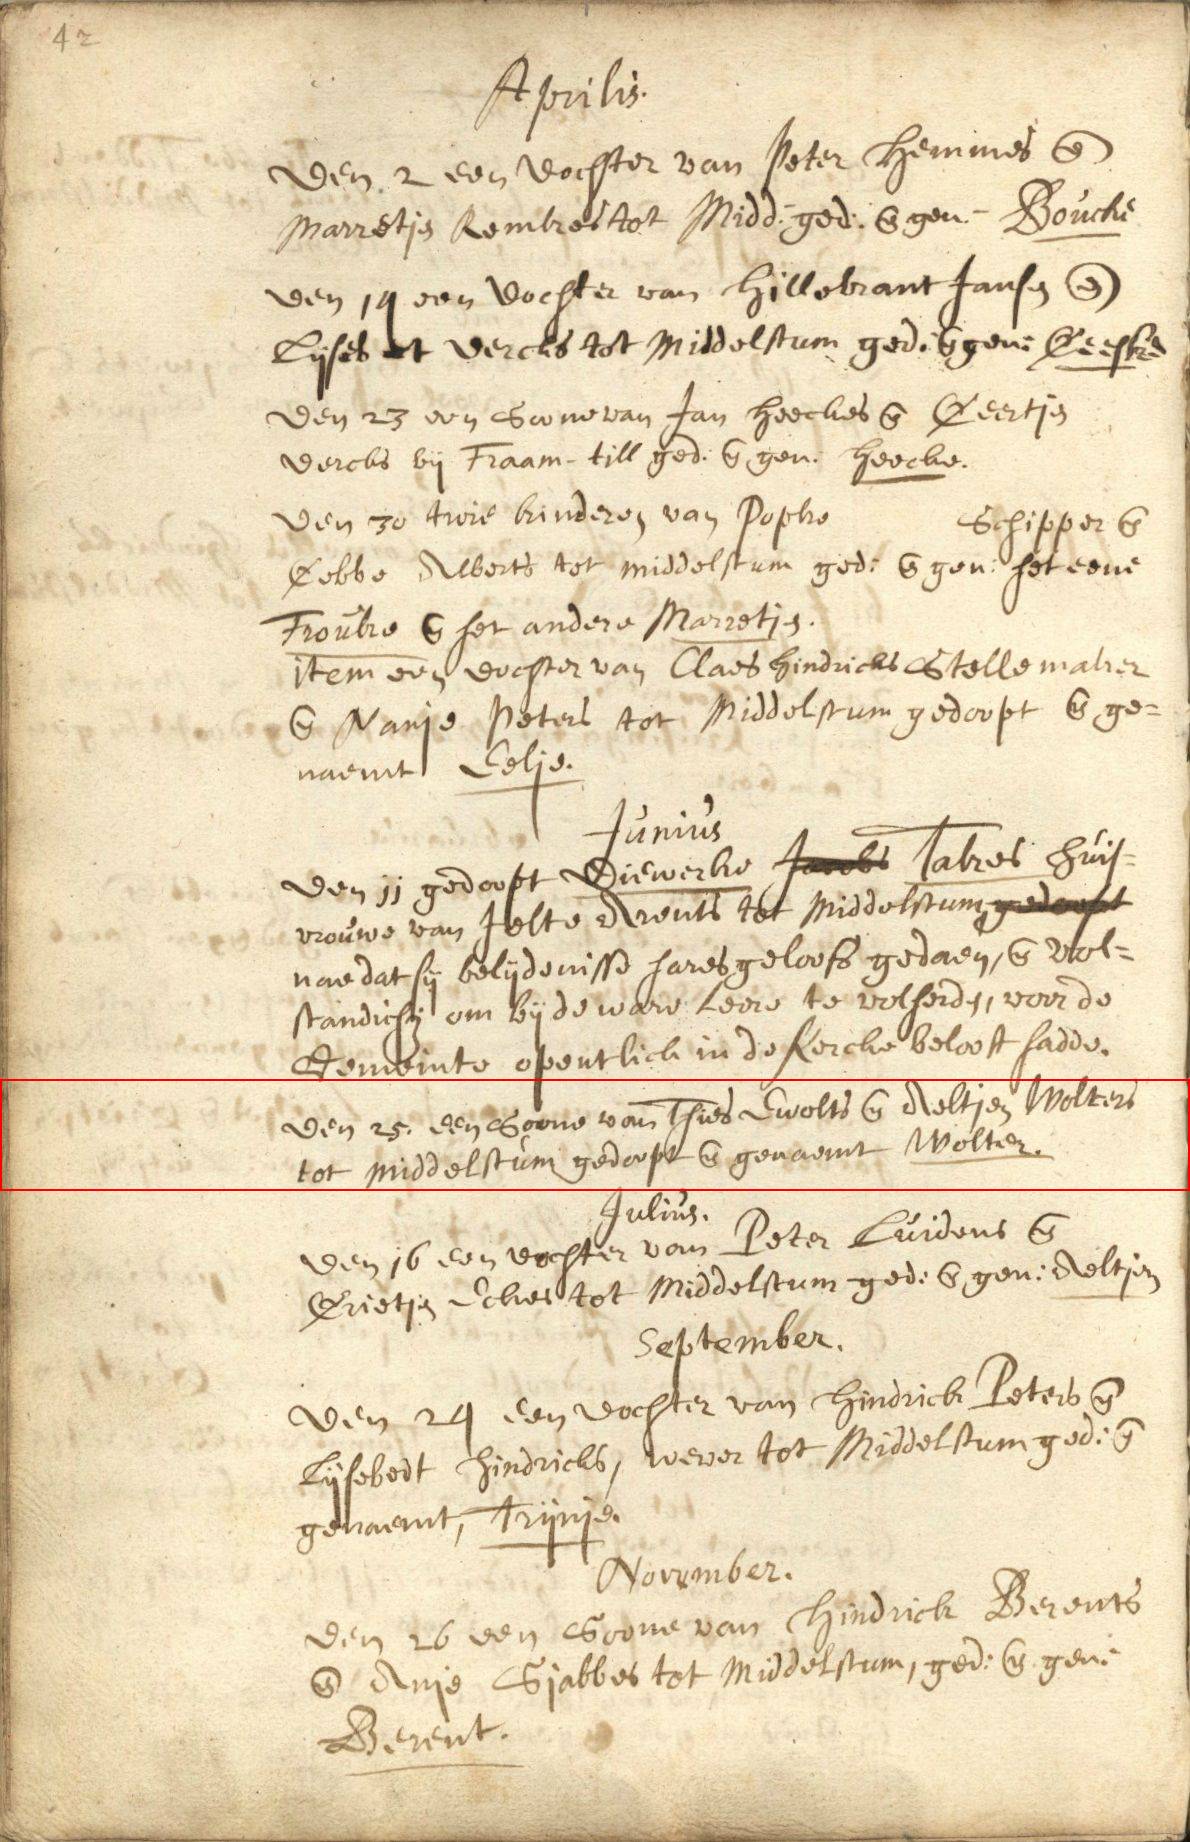 42
Aprilis.
Den 2 een dochter van Peter Hemmes en
Marretjen Rembres tot Midd: ged: en gen: Bouche
den 14 een dochter van Hillebrant Jansen en
Lijsebet Dercks tot Middelstum ged: en gen: Geeske
Den 23 een Soone van Jan Heeckes en Geertjen
Dercks bij Fraam-till ged: en gen: Heecke.
Den 30 twie kinderen van Popko Schipper en
Gebbe Alberts tot middelstum ged: en gen: het eene
Frouke en het andere Marretjen.
item een dochter van Claes Hindricks Stellemaker
en Nanje Peters tot Middelstum gedoopt en ge=
naemt Eelje.
Junius
Den 11 gedoopt Diewerke Jacobs Takes huis=
vrouwe van Jelte Arents tot Middelstum gedoopt
nae dat sij belijdenisse hares geloofs gedaen, en vol=
standich om bij de ware Leere te volherden, voor de
Gemeinte opentlick in de Kercke belooft hadde.
Den 25. een Soone van Thies Ewolts en Aeltjen Wolters
tot middelstum gedoopt en genaemt Wolter.
Julius.
Den 16 een dochter van Peter Luidens en
Grietjen Eckes tot Middelstum ged: en gen: Aeltjen
September.
Den 24 een dochter van Hindrick Peters en
Lijsebedt Hindricks, wever tot Middelstum ged: en
genaemt, Trijnje.
November.
Den 26 een Soone van Hindrick Berents
en Anje Sjabbes tot Middelstum, ged: en gen:
Berent.